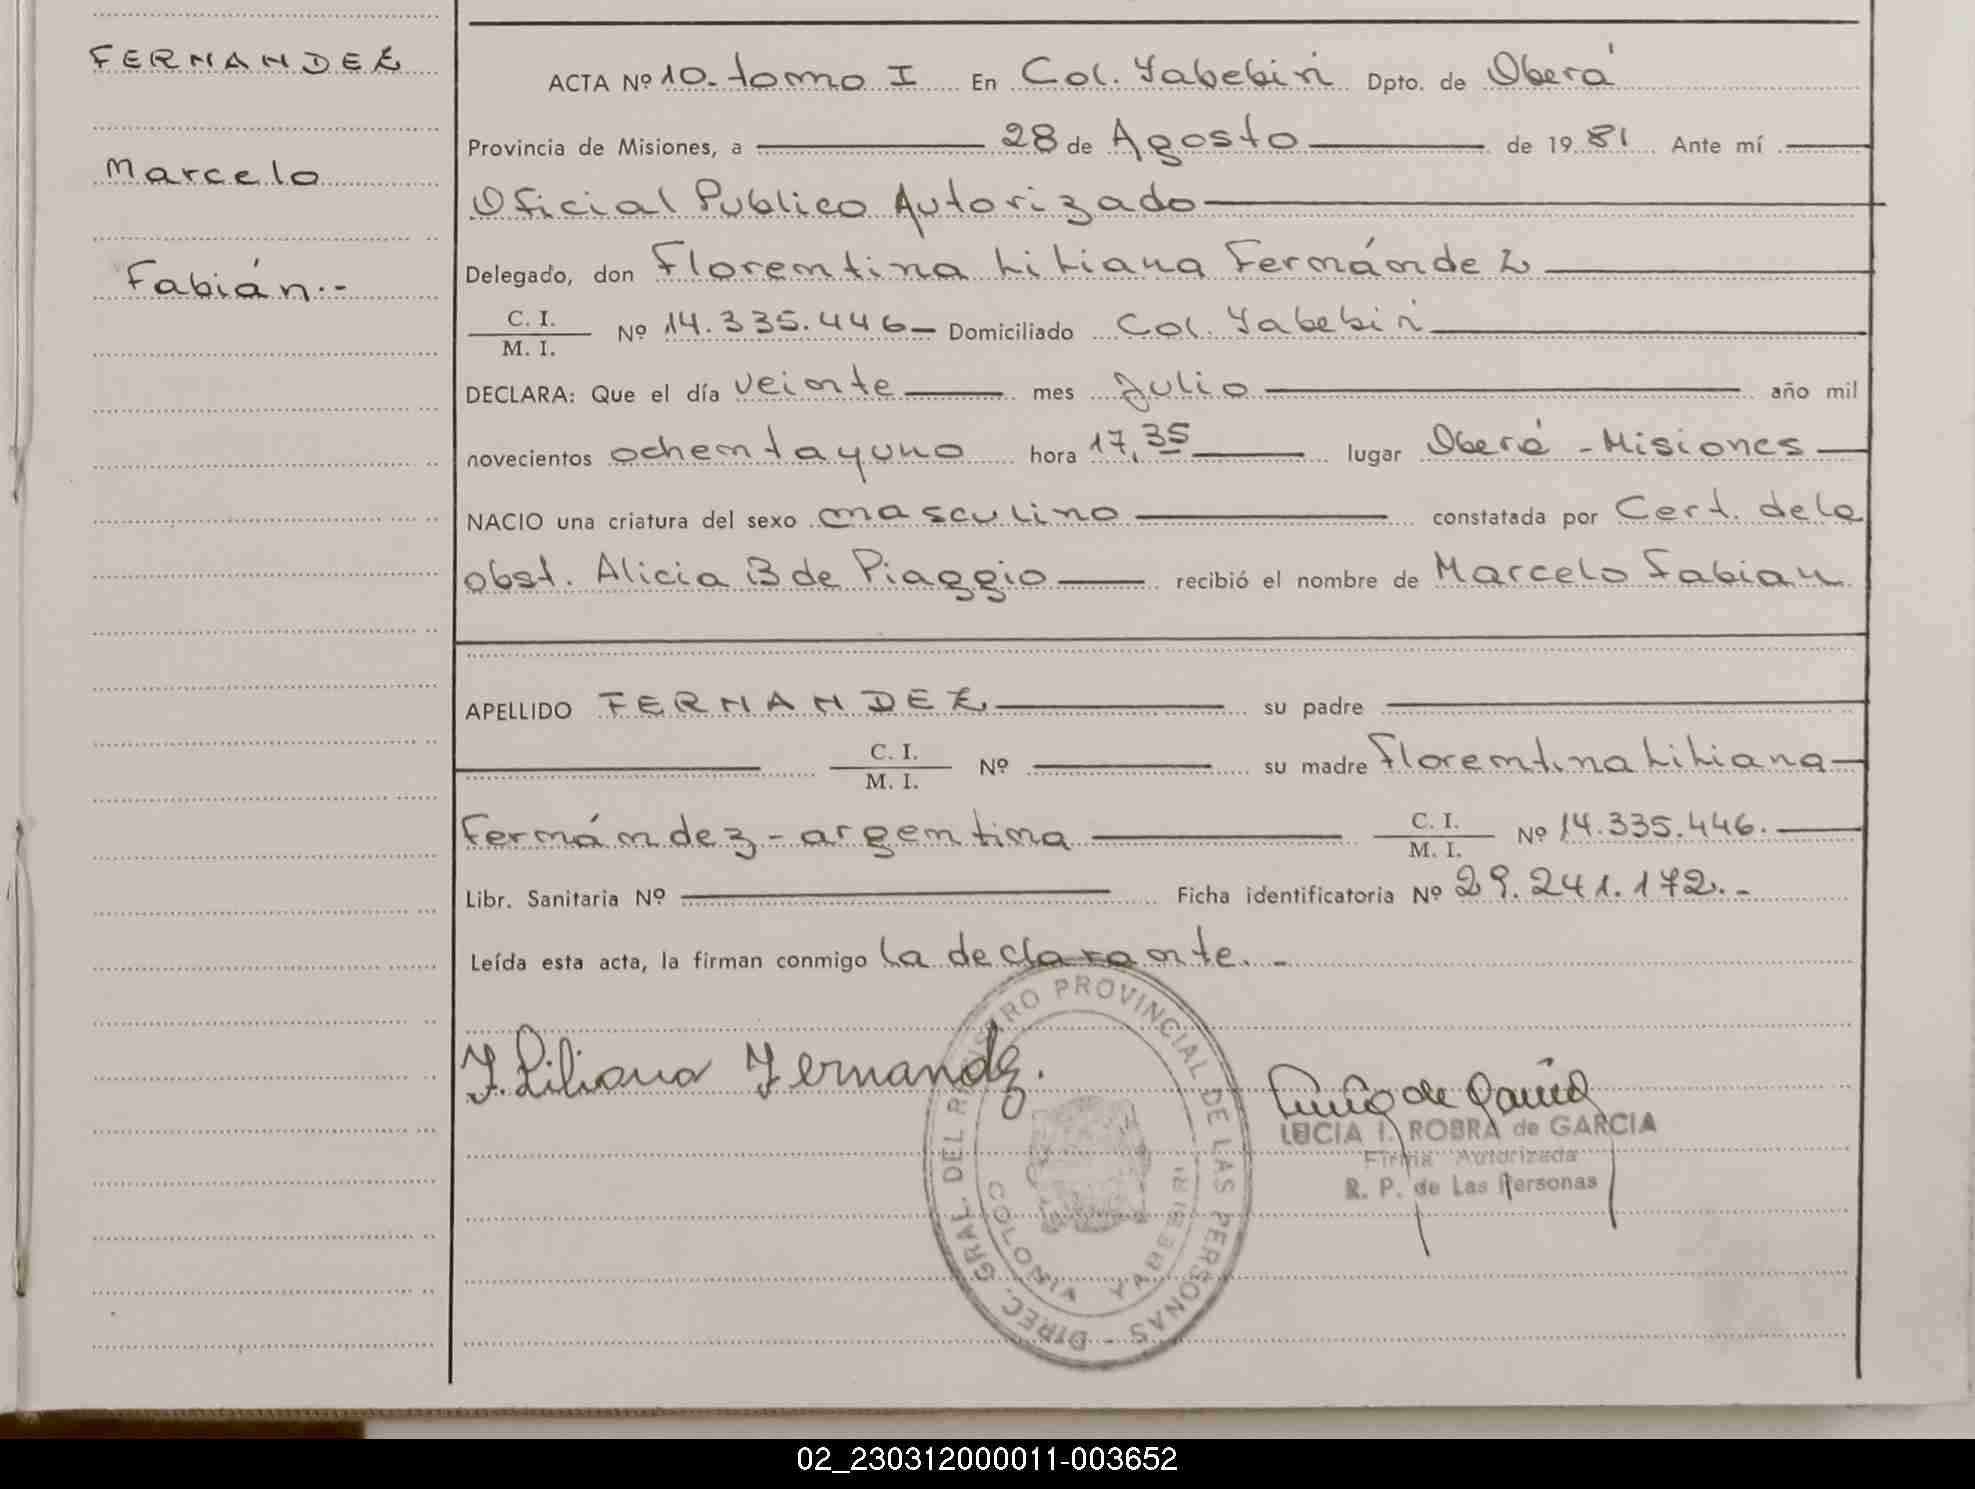 FERNANDEZ
Marcelo
Fabián.-
ACTA Nº 10. tomo I En Col. Yabebirí Dpto. de Oberá
Provincia de Misiones, a 28 de Agosto de 1981 Ante mí
Oficial Publico Autorizado
Delegado, don Florentina Liliana Fernández
C. I.
M. I. Nº 14.335.446 Domiciliado Col. Yabebirí
DECLARA: Que el día veinte mes Julio año mil
novecientos ochentayuno hora 17,35 lugar Oberá - Misiones
NACIO una criatura del sexo masculino constatada por Cert. de la
obst. Alicia B de Piaggio recibió el nombre de Marcelo Fabian
APELLIDO FERNANDEZ su padre
C. I.
M. I. Nº su madre Florentina Liliana
Fernández - argentina C. I.
M. I. Nº 14.335.446.
Libr. Sanitaria Nº Ficha identificatoria Nº 29.241.172.-
Leída esta acta, la firman conmigo la declarante.-
F. Liliana Fernandez.
DIREC. GRAL. DEL REGISTRO PROVINCIAL DE LAS PERSONAS -
COLONIA YABEBIRI
LUCIA I. ROBRA de GARCIA
Firma Autorizada
R. P. de Las Personas
02_230312000011-003652